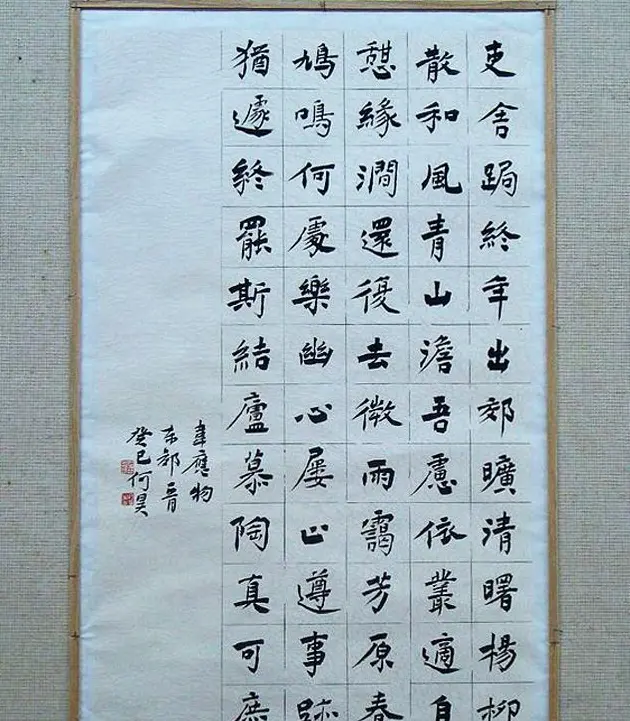 吏舍跼終年出郊曠清曙楊柳
散和風青山澹吾慮依叢適自
憩緣澗還復去微雨靄芳原春
鳩鳴何處樂幽心屡止遵事跡
猶遽終罷斯結廬慕陶真可庶
韋應物
东郊一首
癸巳何昊